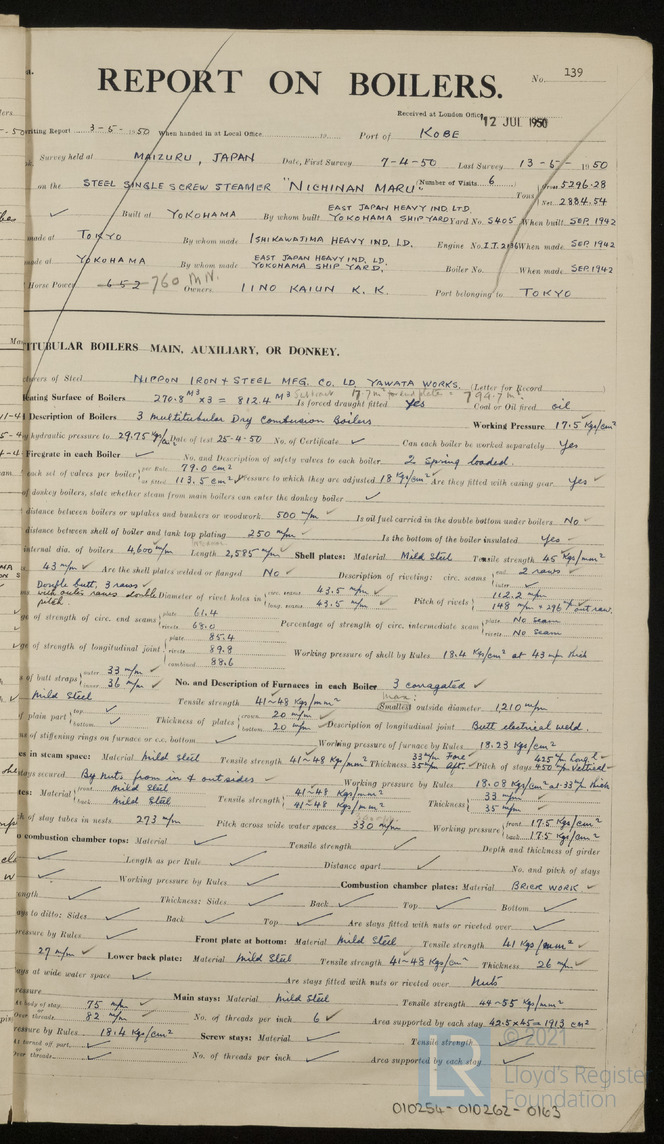 REPORT ON BOILERS.
No. 139
Received at London Office 12 JUL 1950
writing Report 3-5-1950 When handed in at Local Office 19 Port of KOBE
Survey held at MAIZURU, JAPAN Date, First Survey 7-4-50 Last Survey 13-5-1950
on the STEEL SINGLE SCREW STEAMER "NICHINAN MARU" (Number of Visits 6 Tons Gross 5296.28 Net 2884.54
Built at YOKOHAMA By whom built EAST JAPAN HEAVY IND. LTD. YOKOHAMA SHIPYARD Yard No. S405 When built SEP. 1942
made at TOKYO By whom made ISHIKAWAJIMA HEAVY IND. LD. Engine No. When made SEP. 1942
made at YOKOHAMA By whom made EAST JAPAN HEAVY IND. LD. YOKOHAMA SHIP YARD. Boiler No. When made SEP. 1942
Horse Power 652 760 MN. Owners IINO KAIUN K. K. Port belonging to TOKYO
TITUBULAR BOILERS MAIN, AUXILIARY, OR DONKEY.
of Steel NIPPON IRON & STEEL MFG. CO. LD. YAWATA WORKS. (Letter for Record )
eating Surface of Boilers 270.8 M3 x3 = 812.4 M3 Is forced draught fitted Yes Coal or Oil fired oil
Description of Boilers 3 Multitubular Dry Combusion Boilers Working Pressure 17.5 Kgs/cm²
hydraulic pressure to 29.75 Date of test 25-4-50 No. of Certificate ✓ Can each boiler be worked separately Yes
Firegrate in each Boiler ✓ No. and Description of safety valves to each boiler 2 Spring loaded.
each set of valves per boiler per Rule 79.0 cm² as fitted 113.5 cm² Pressure to which they are adjusted 18 Kgs/cm² Are they fitted with easing gear Yes ✓
of donkey boilers, state whether steam from main boilers can enter the donkey boiler ✓
distance between boilers or uptakes and bunkers or woodwork 500 m/m ✓ Is oil fuel carried in the double bottom under boilers No ✓
distance between shell of boiler and tank top plating 250 m/m ✓ Is the bottom of the boiler insulated Yes ✓
internal dia. of boilers 4,600 m/m Length 2,585 m/m ✓ Shell plates: Material Mild Steel Tensile strength 45 Kgs/mm²
43 m/m ✓ Are the shell plates welded or flanged No ✓ Description of riveting: circ. seams end 2 rows ✓ inter. ✓
Double butt, 3 rows ✓ with outer rows double pitch. Diameter of rivet holes in circ. seams 43.5 m/m ✓ long. seams 43.5 m/m ✓ Pitch of rivets 112.2 m/m 148 m/m & 296 m/m out row.
ge of strength of circ. end seams plate 61.4 rivets 68.0 Percentage of strength of circ. intermediate seam plate No seam rivets No seam
ge of strength of longitudinal joint plate 85.4 rivets 89.8 combined 88.6 Working pressure of shell by Rules 18.4 Kgs/cm² at 43 m/m thick
of butt straps outer 33 m/m ✓ inner 36 m/m ✓ No. and Description of Furnaces in each Boiler 3 corrugated ✓
Mild Steel Tensile strength 41~48 Kgs/mm² max: Smallest outside diameter 1210 m/m
of plain part top ✓ bottom ✓ Thickness of plates crown 20 m/m ✓ bottom 20 m/m ✓ Description of longitudinal joint Butt electrical weld.
ns of stiffening rings on furnace or c.c. bottom ✓ Working pressure of furnace by Rules 18.23 Kgs/cm²
es in steam space: Material Mild Steel Tensile strength 41~48 Kg/mm² Thickness 33 m/m Fore ✓ 35 m/m Aft ✓ Pitch of stays 425 m/m Long'l ✓ 450 m/m Vertical ✓
stays secured By nuts from in & outsides ✓ Working pressure by Rules 18.08 Kgs/cm² at 33 m/m thick
tes: Material front Mild Steel back Mild Steel Tensile strength 41~48 Kgs/mm² 41~48 Kgs/mm² Thickness 33 m/m 35 m/m ✓
ch of stay tubes in nests 273 m/m Pitch across wide water spaces 330 m/m Working pressure front 17.5 Kgs/cm² back 17.5 Kgs/cm²
o combustion chamber tops: Material ✓ Tensile strength ✓ Depth and thickness of girder
✓ Length as per Rule ✓ Distance apart ✓ No. and pitch of stays
✓ Working pressure by Rules ✓ Combustion chamber plates: Material BRICK WORK ✓
ength ✓ Thickness: Sides ✓ Back ✓ Top ✓ Bottom ✓
ays to ditto: Sides ✓ Back ✓ Top ✓ Are stays fitted with nuts or riveted over ✓
ressure by Rules ✓ Front plate at bottom: Material Mild Steel Tensile strength 41 Kgs/mm² ✓
27 m/m ✓ Lower back plate: Material Mild Steel Tensile strength 41~48 Kgs/cm² Thickness 26 m/m ✓
ays at wide water space ✓ Are stays fitted with nuts or riveted over Nuts
ressure Main stays: Material Mild Steel Tensile strength 49~55 Kgs/mm²
At body of stay, 75 m/m ✓ or Over threads 82 m/m ✓ No. of threads per inch 6 ✓ Area supported by each stay 42.5x45=1913 cm²
ressure by Rules 18.4 Kgs/cm² Screw stays: Material ✓ Tensile strength ✓
At turned off part, ✓ or Over threads ✓ No. of threads per inch ✓ Area supported by each stay ✓
© 2021
LR
Lloyd's Register
Foundation
010254-010262-0163